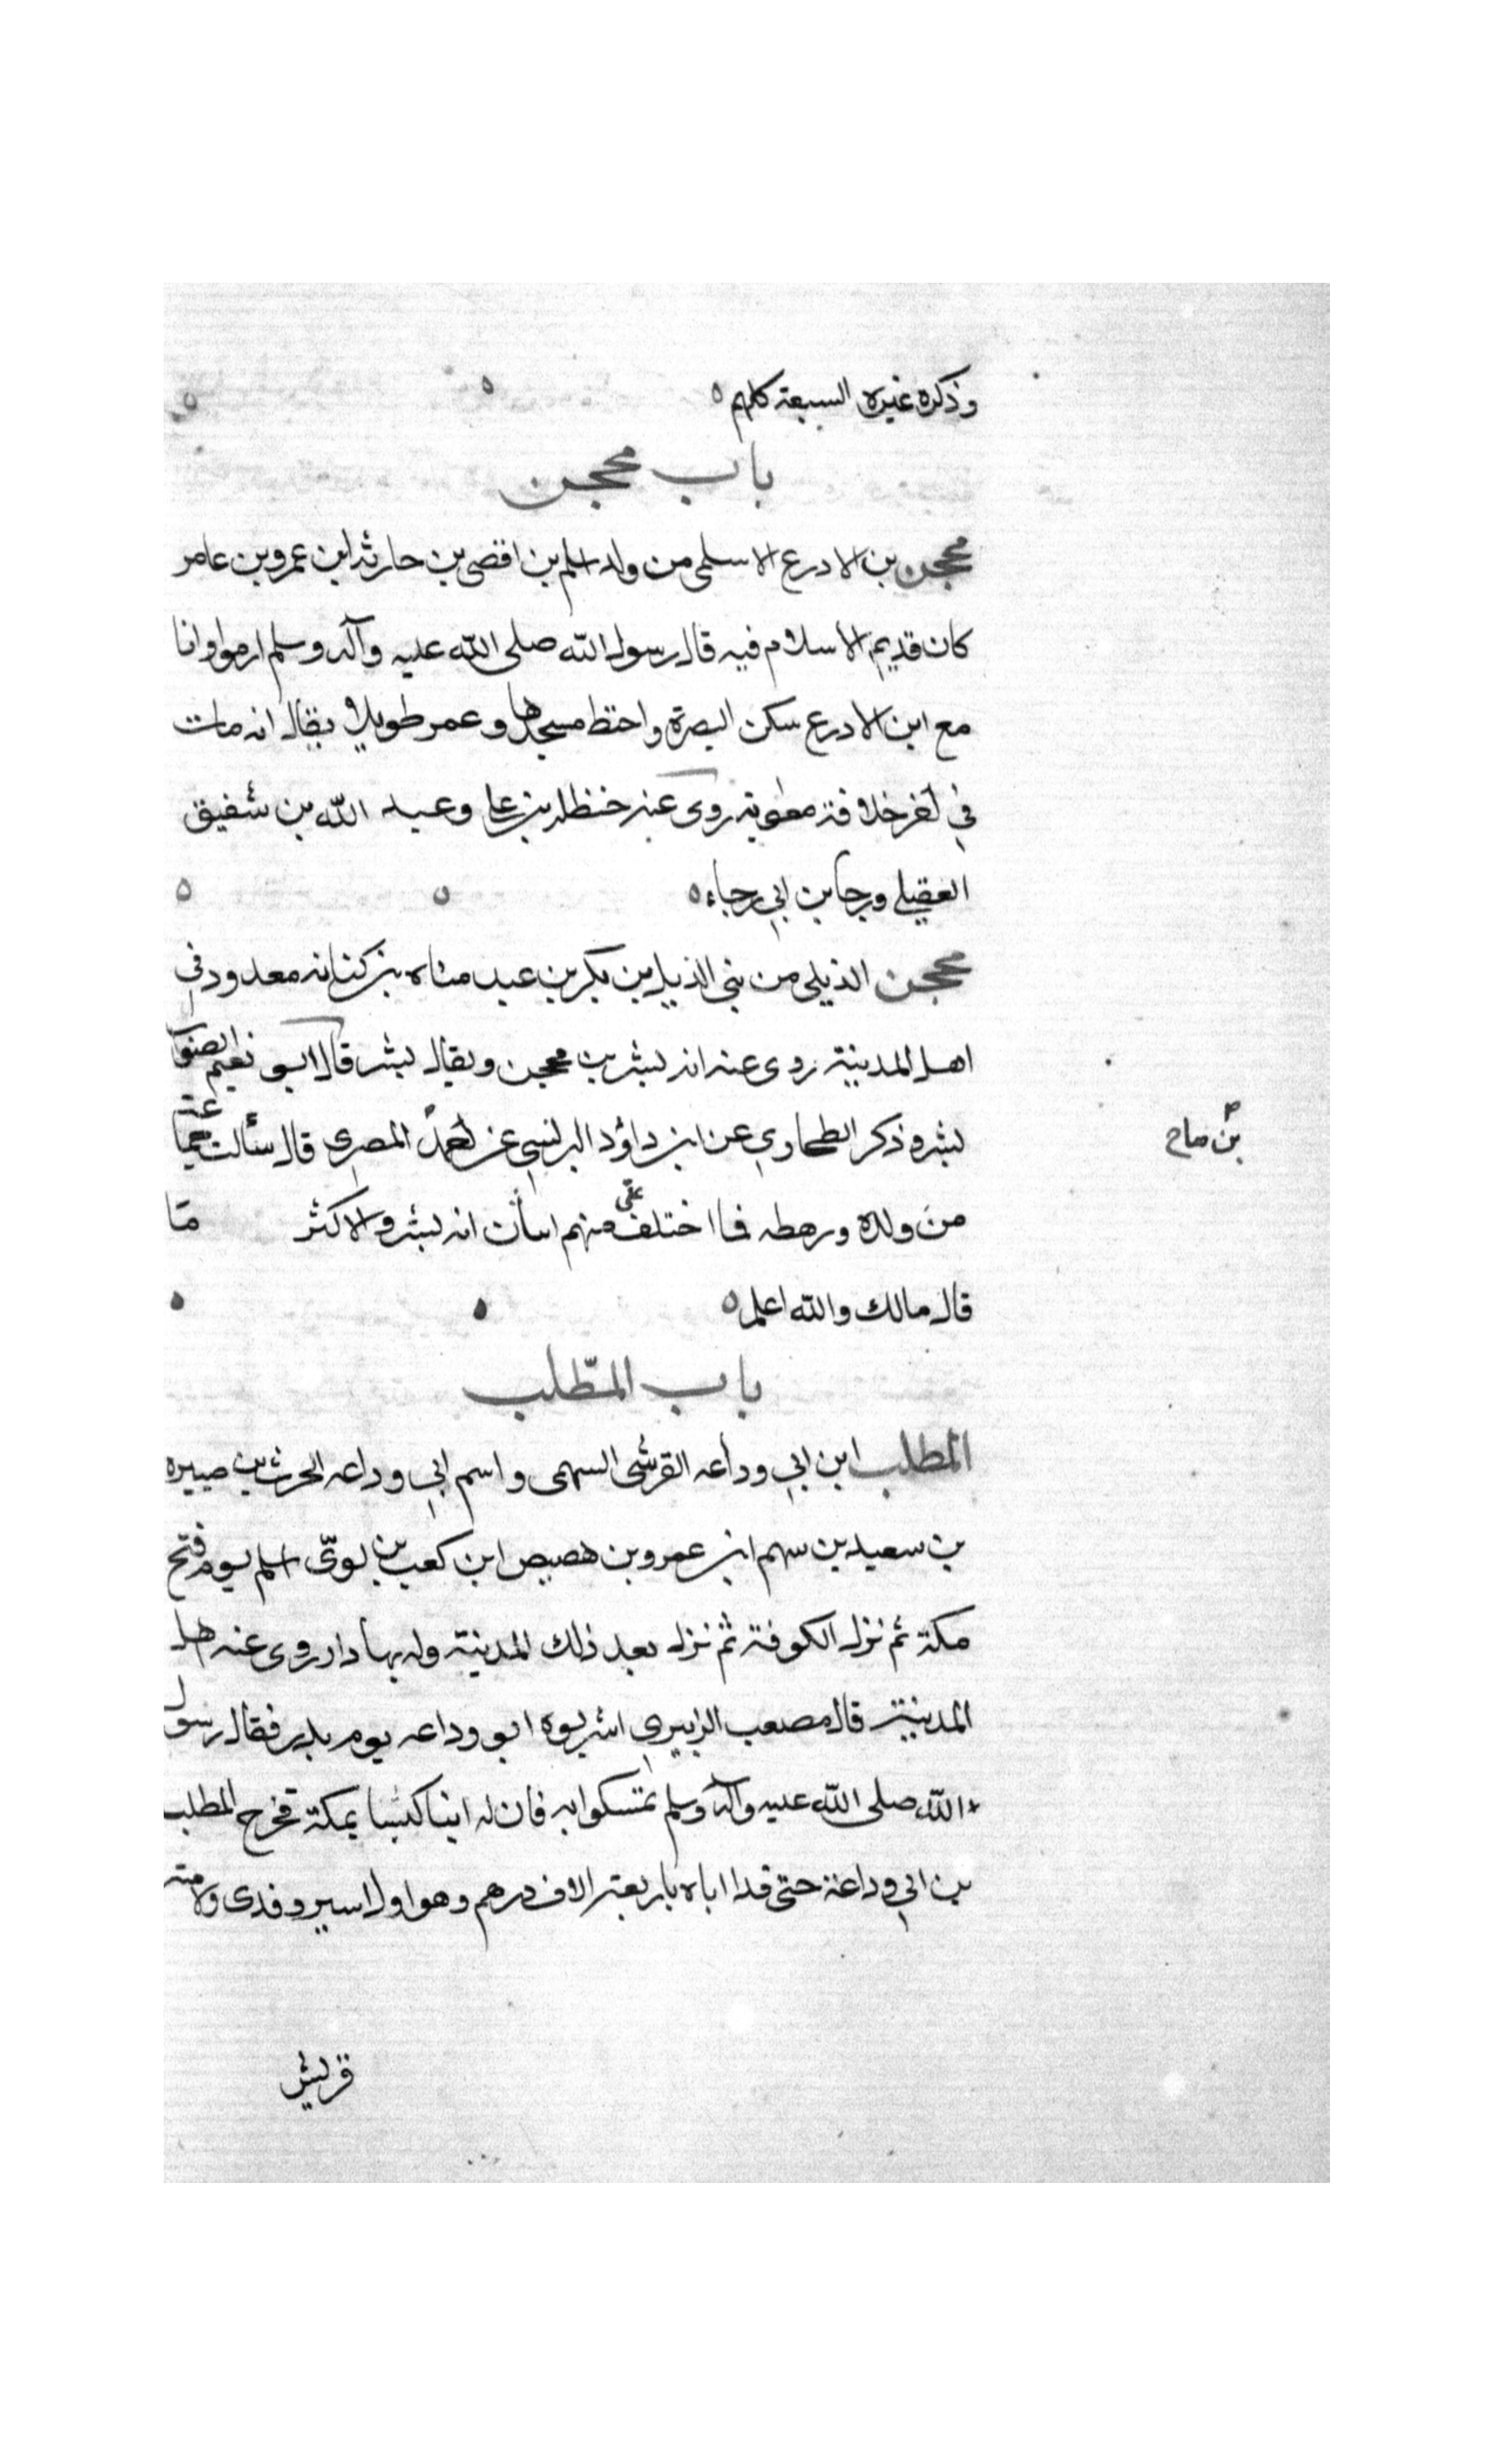 وذكره غيره السبعة كلهم
باب محجن
محجن بن الادرع الاسلمى من ولد اسلم بن افصى بن حارثه ابن عمرو بن عامر
كان قديم الاسلام فيه قال رسول الله صلى الله عليه وآله وسلم ارموا وانا
مع ابن الادرع سكن البصرة واختط مسجدها وعمر طويلا يقال انه مات
في آخر خلافة معوية روى عنه حنظله بن على وعبد الله بن شقيق
العقيلي ورجا بن ابي رجاء
محجن الديلى من بني الديل بن بكر بن عبد مناه بن كنانه معدود في
اهل المدينة روى عنه ابنه بشر بن محجن ويقال بشر قال ابو نعيم الصواب
بشر وذكر الطحاوي عن ابن داؤد البرلسي عن احمد المصري قال سألت جماعة
بن صالح
من ولده ورهطه فما اختلف على منهم اثنان انه بشر والاكثر ما
قال مالك والله اعلم
باب المطلب
المطلب ابن ابي وداعه القرشى السهمى واسم ابي وداعه الحرث بن صبيره
بن سعيد بن سهم ابن عمرو بن هصيص ابن كعب بن لوىّ اسلم يوم فتح
مكة ثم نزل الكوفة ثم نزل بعد ذلك المدينة وله بها دار روى عنه اهل
المدينة قال مصعب الزبيري ابو وداعه يوم بدر فقال رسول
الله صلى الله عليه وآله وسلم تمسكوا به فان له ابنا كيسا بمكة فخرج المطلب
بن ابي وداعة حتى فدا اباه باربعة الاف درهم وهو اول اسير فدى ولامته
قريش